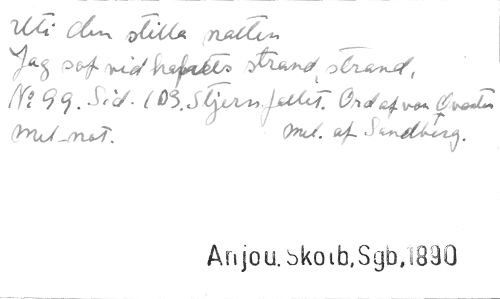 Uti den stilla natten
Jag sof vid hafvets strand, strand,
No 99. Sid. 103. Stjernfallet. Ord af von Qvanten
mel. not. mel. af Sandberg.
Anjou, Skolb, Sgb, 1890